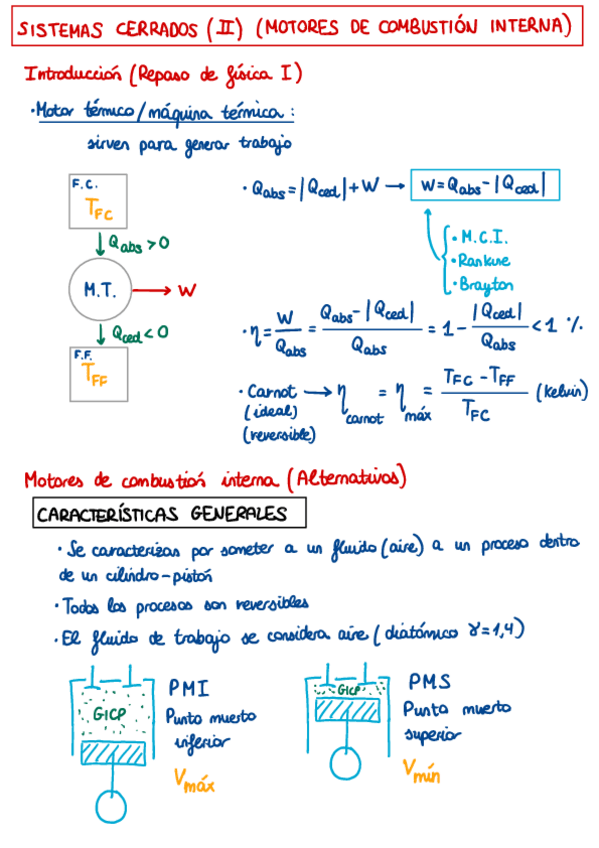 SISTEMAS CERRADOS (II) (MOTORES DE COMBUSTIÓN INTERNA)
Introducción (Repaso de física I)
· Motor térmico/máquina térmica :
sirven para generar trabajo
F.C.
T_FC
Q_abs > 0
M.T.
W
Q_ced < 0
F.F.
T_FF
· Q_abs = |Q_ced| + W → W = Q_abs - |Q_ced|
· M.C.I.
· Rankine
· Brayton
· η = W / Q_abs = (Q_abs - |Q_ced|) / Q_abs = 1 - |Q_ced| / Q_abs < 1 %
· Carnot → η_carnot = η_máx = (T_FC - T_FF) / T_FC (Kelvin)
(ideal)
(reversible)
Motores de combustión interna (Alternativos)
CARACTERÍSTICAS GENERALES
· Se caracterizas por someter a un fluido (aire) a un proceso dentro
de un cilindro-pistón
· Todos los procesos son reversibles
· El fluido de trabajo se considera aire (diatómico γ=1,4)
GICP
PMI
Punto muerto
inferior
V_máx
GICP
PMS
Punto muerto
superior
V_mín